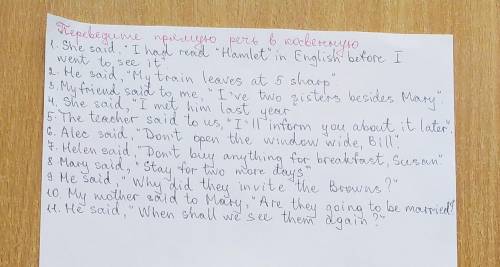 Переведите прямую речь в косвенную
1. She said, "I had read "Hamlet" in English before I
went to see it"
2. He said, "My train leaves at 5 sharp".
3. My friend said to me, "I've two sisters besides Mary".
4. She said, "I met him last year"
5. The teacher said to us, "I'll inform you about it later".
6. Alec said, "Don't open the window wide, Bill".
7. Helen said, "Don't buy anything for breakfast, Susan"
8. Mary said, "Stay for two more days"
9. He said, "Why did they invite the Browns?"
10. My mother said to Mary, "Are they going to be married?
11. He said, "When shall we see them again?"